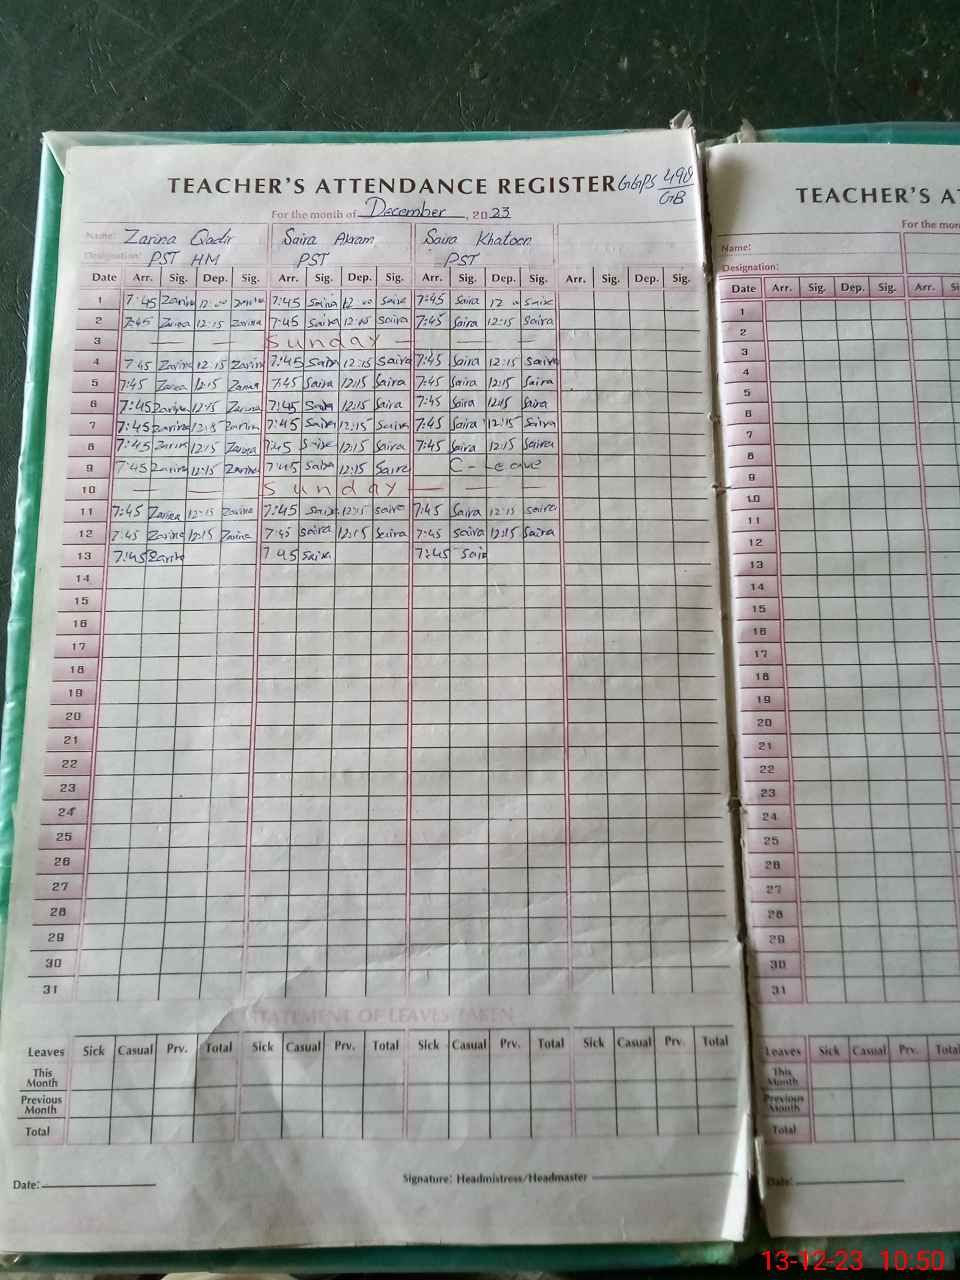 TEACHER'S ATTENDANCE REGISTER GGPS 498/GB
For the month of December, 2023
Name: Zarina Qadir Saira Akram Saira Khatoon
Designation: PST HM PST PST
Date Arr. Sig. Dep. Sig. Arr. Sig. Dep. Sig. Arr. Sig. Dep. Sig. Arr. Sig. Dep. Sig.
1 7:45 Zarina 12:00 Zarina 7:45 Saira 12:00 Saira 7:45 Saira 12 Saira
2 7:45 Zarina 12:15 Zarina 7:45 Saira 12:15 Saira 7:45 Saira 12:15 Saira
3 — — — Sunday — — — —
4 7:45 Zarina 12:15 Zarina 7:45 Saira 12:15 Saira 7:45 Saira 12:15 Saira
5 7:45 Zarina 12:15 Zarina 7:45 Saira 12:15 Saira 7:45 Saira 12:15 Saira
6 7:45 Zarina 12:15 Zarina 7:45 Saira 12:15 Saira 7:45 Saira 12:15 Saira
7 7:45 Zarina 12:15 Zarina 7:45 Saira 12:15 Saira 7:45 Saira 12:15 Saira
8 7:45 Zarina 12:15 Zarina 7:45 Saira 12:15 Saira 7:45 Saira 12:15 Saira
9 7:45 Zarina 12:15 Zarina 7:45 Saira 12:15 Saira C-Leave
10 — — Sunday — — — —
11 7:45 Zarina 12:15 Zarina 7:45 Saira 12:15 Saira 7:45 Saira 12:15 Saira
12 7:45 Zarina 12:15 Zarina 7:45 Saira 12:15 Saira 7:45 Saira 12:15 Saira
13 7:45 Zarina 7:45 Saira 7:45 Saira
14
15
16
17
18
19
20
21
22
23
24
25
26
27
28
29
30
31
STATEMENT OF LEAVES TAKEN
Leaves Sick Casual Prv. Total Sick Casual Prv. Total Sick Casual Prv. Total Sick Casual Prv. Total
This Month
Previous Month
Total
Date: Signature: Headmistress/Headmaster
TEACHER'S AT
For the mon
Name:
Designation:
Date Arr. Sig. Dep. Sig. Arr. Si
1
2
3
4
5
6
7
8
9
10
11
12
13
14
15
16
17
18
19
20
21
22
23
24
25
26
27
28
29
30
31
Leaves Sick Casual Prv. Total
This Month
Previous Month
Total
Date:
13-12-23 10:50